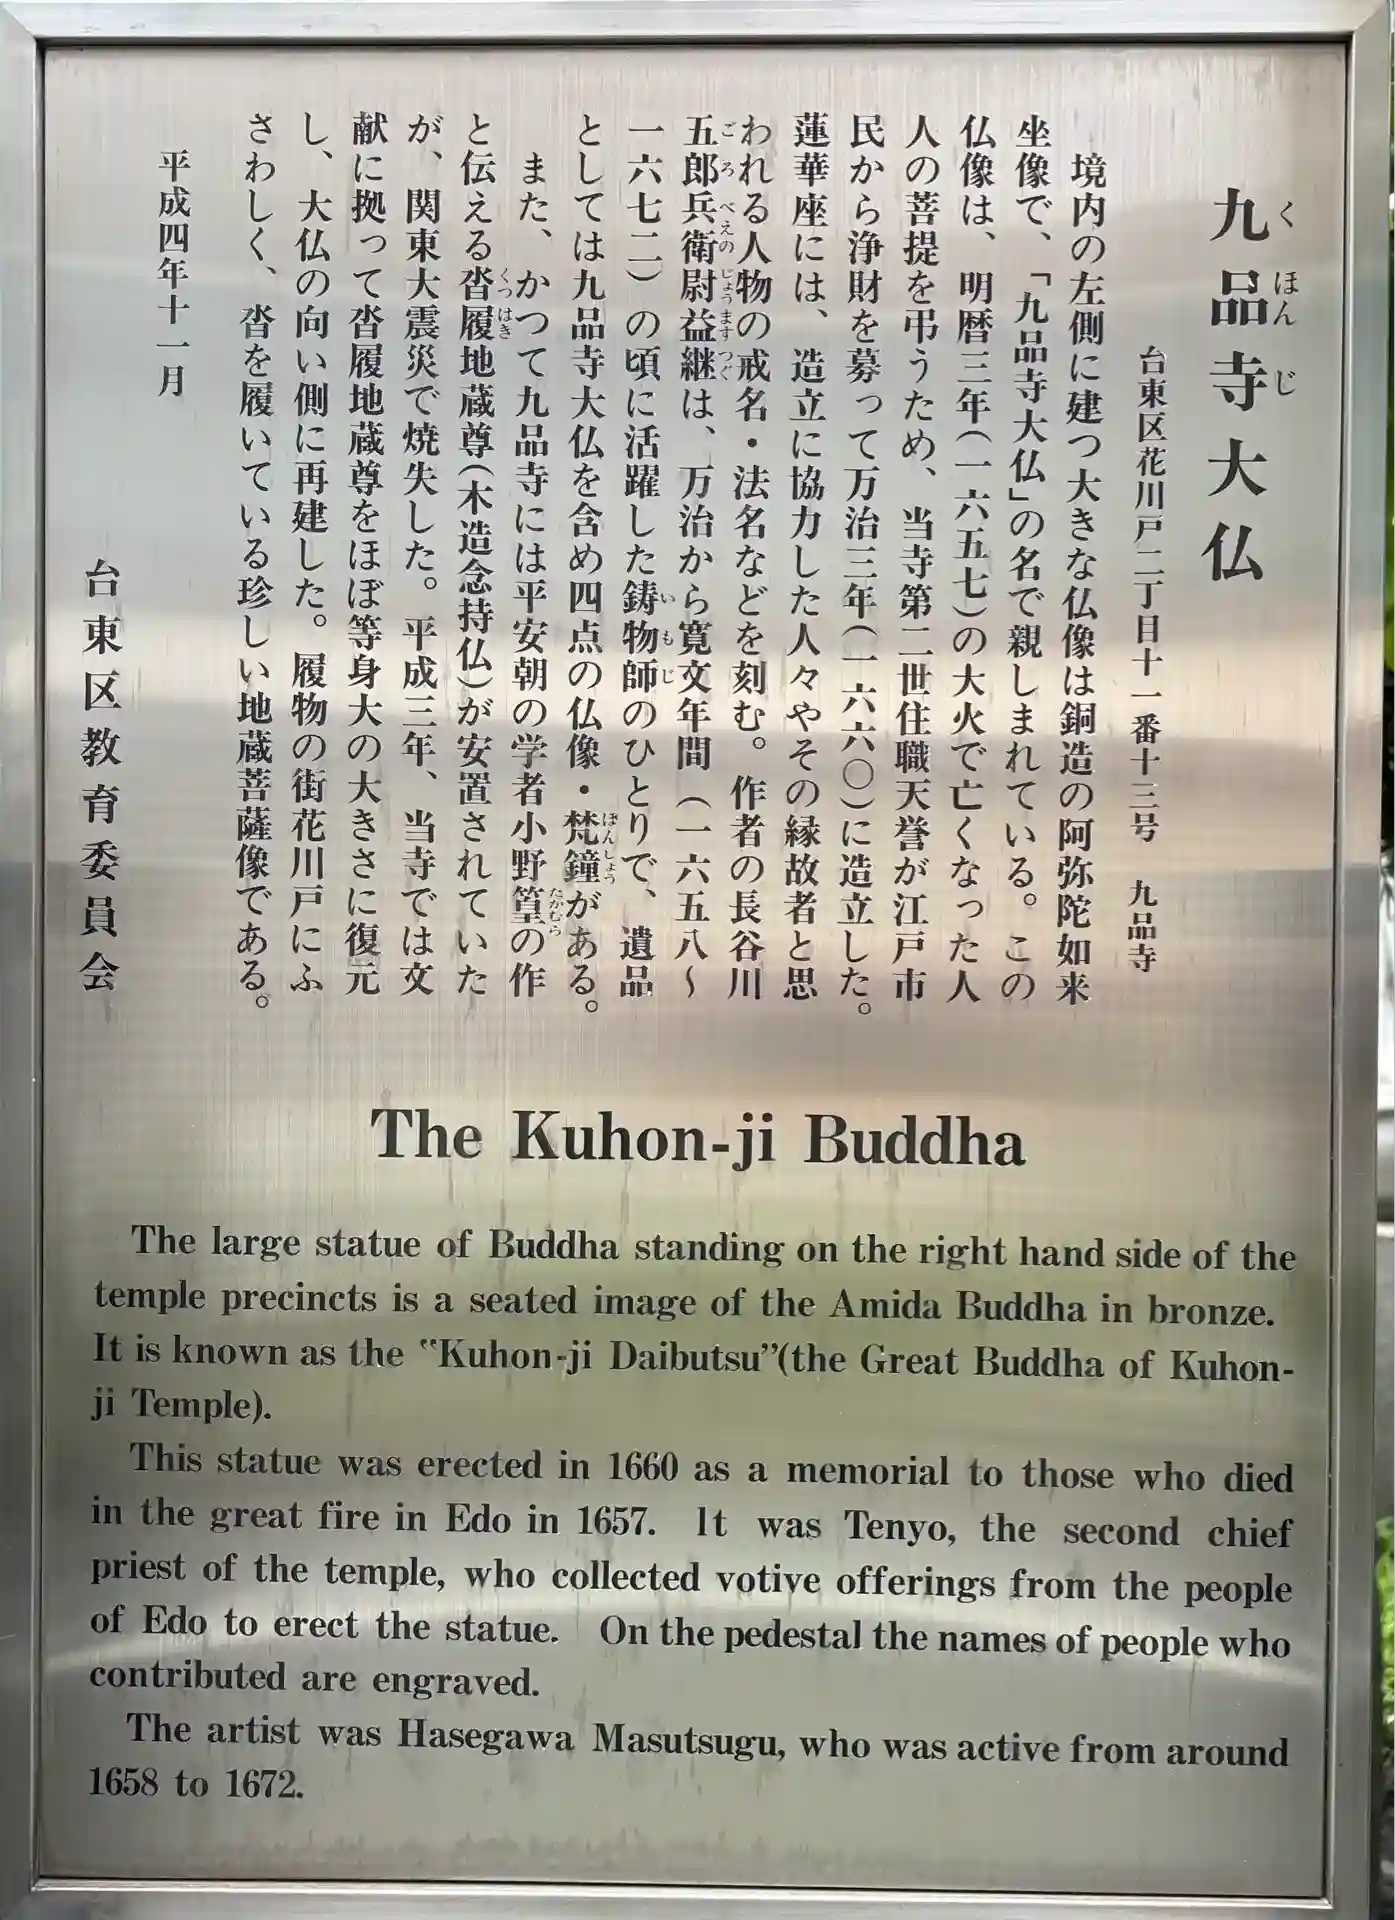 九品寺大仏
台東区花川戸二丁目十一番十三号 九品寺
境内の左側に建つ大きな仏像は銅造の阿弥陀如来
坐像で、「九品寺大仏」の名で親しまれている。この
仏像は、明暦三年(一六五七)の大火で亡くなった人
人の菩提を弔うため、当寺第二世住職天誉が江戸市
民から浄財を募って万治三年(一六六〇)に造立した。
蓮華座には、造立に協力した人々やその縁故者と思
われる人物の戒名・法名などを刻む。作者の長谷川
五郎兵衛尉益継は、万治から寛文年間(一六五八~
一六七二)の頃に活躍した鋳物師のひとりで、遺品
としては九品寺大仏を含め四点の仏像・梵鐘がある。
また、かつて九品寺には平安朝の学者小野篁の作
と伝える沓履地蔵尊(木造念持仏)が安置されていた
が、関東大震災で焼失した。平成三年、当寺では文
献に拠って沓履地蔵尊をほぼ等身大の大きさに復元
し、大仏の向い側に再建した。履物の街花川戸にふ
さわしく、沓を履いている珍しい地蔵菩薩像である。
平成四年十一月
台東区教育委員会
The Kuhon-ji Buddha
The large statue of Buddha standing on the right hand side of the
temple precincts is a seated image of the Amida Buddha in bronze.
It is known as the "Kuhon-ji Daibutsu"(the Great Buddha of Kuhon-
ji Temple).
This statue was erected in 1660 as a memorial to those who died
in the great fire in Edo in 1657. It was Tenyo, the second chief
priest of the temple, who collected votive offerings from the people
of Edo to erect the statue. On the pedestal the names of people who
contributed are engraved.
The artist was Hasegawa Masutsugu, who was active from around
1658 to 1672.